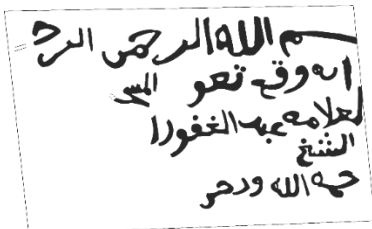 سم الله الرحمن الرح
انه وقع تعو المس
لعلامه عبد الغفورا
الشيخ
حمه الله ودحر